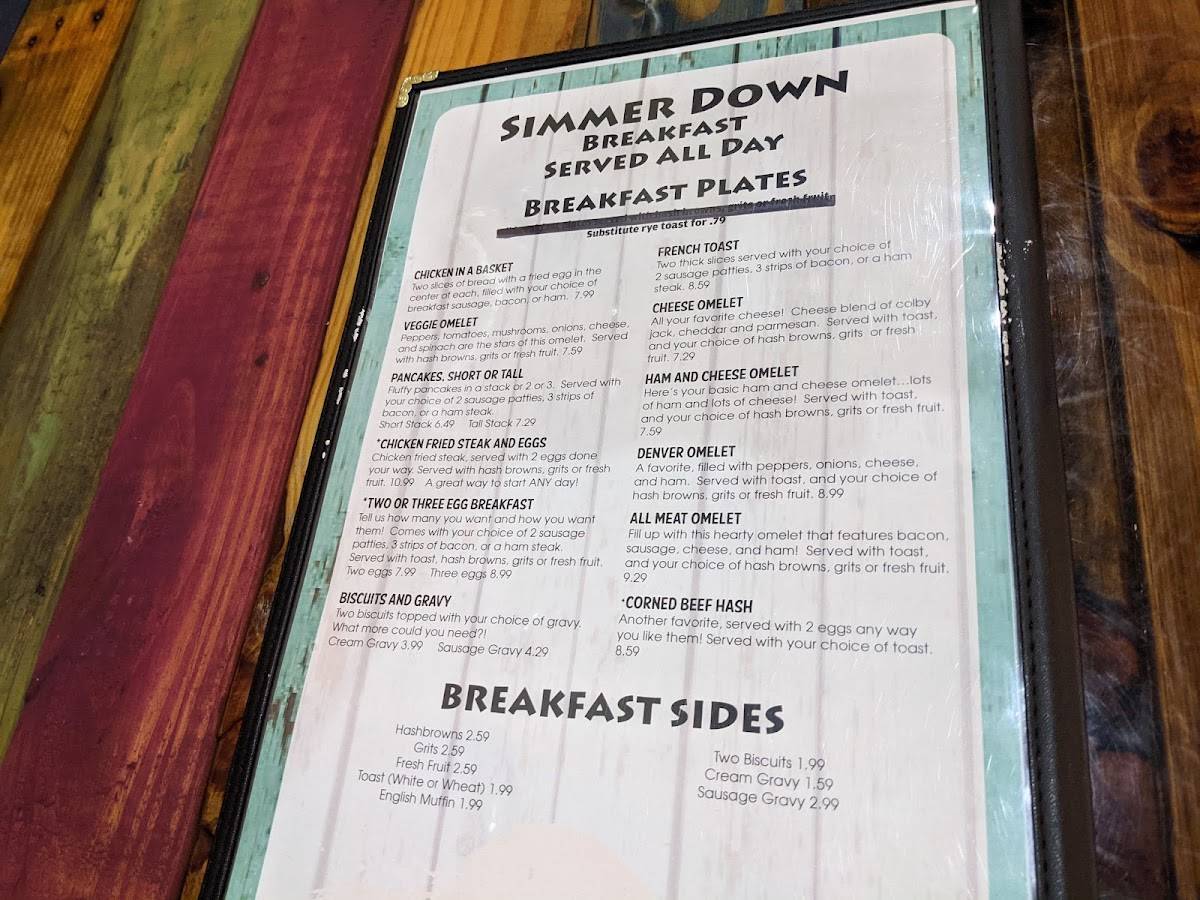 SIMMER DOWN
BREAKFAST
SERVED ALL DAY
BREAKFAST PLATES
with hash browns, grits or fresh fruit.
Substitute rye toast for .79
CHICKEN IN A BASKET
Two slices of bread with a fried egg in the
center at each, filled with your choice of
breakfast sausage, bacon, or ham. 7.99
VEGGIE OMELET
Peppers, tomatoes, mushrooms, onions, cheese,
and spinach are the stars of this omelet. Served
with hash browns, grits or fresh fruit. 7.59
PANCAKES, SHORT OR TALL
Fluffy pancakes in a stack or 2 or 3. Served with
your choice of 2 sausage patties, 3 strips of
bacon, or a ham steak.
Short Stack 6.49 Tall Stack 7.29
*CHICKEN FRIED STEAK AND EGGS
Chicken fried steak, served with 2 eggs done
your way. Served with hash browns, grits or fresh
fruit. 10.99 A great way to start ANY day!
*TWO OR THREE EGG BREAKFAST
Tell us how many you want and how you want
them! Comes with your choice of 2 sausage
patties, 3 strips of bacon, or a ham steak.
Served with toast, hash browns, grits or fresh fruit.
Two eggs 7.99 Three eggs 8.99
BISCUITS AND GRAVY
Two biscuits topped with your choice of gravy.
What more could you need?!
Cream Gravy 3.99 Sausage Gravy 4.29
FRENCH TOAST
Two thick slices served with your choice of
2 sausage patties, 3 strips of bacon, or a ham
steak. 8.59
CHEESE OMELET
All your favorite cheese! Cheese blend of colby
jack, cheddar and parmesan. Served with toast,
and your choice of hash browns, grits or fresh
fruit. 7.29
HAM AND CHEESE OMELET
Here's your basic ham and cheese omelet...lots
of ham and lots of cheese! Served with toast,
and your choice of hash browns, grits or fresh fruit.
7.59
DENVER OMELET
A favorite, filled with peppers, onions, cheese,
and ham. Served with toast, and your choice of
hash browns, grits or fresh fruit. 8.99
ALL MEAT OMELET
Fill up with this hearty omelet that features bacon,
sausage, cheese, and ham! Served with toast,
and your choice of hash browns, grits or fresh fruit.
9.29
*CORNED BEEF HASH
Another favorite, served with 2 eggs any way
you like them! Served with your choice of toast.
8.59
BREAKFAST SIDES
Hashbrowns 2.59
Grits 2.59
Fresh Fruit 2.59
Toast (White or Wheat) 1.99
English Muffin 1.99
Two Biscuits 1.99
Cream Gravy 1.59
Sausage Gravy 2.99